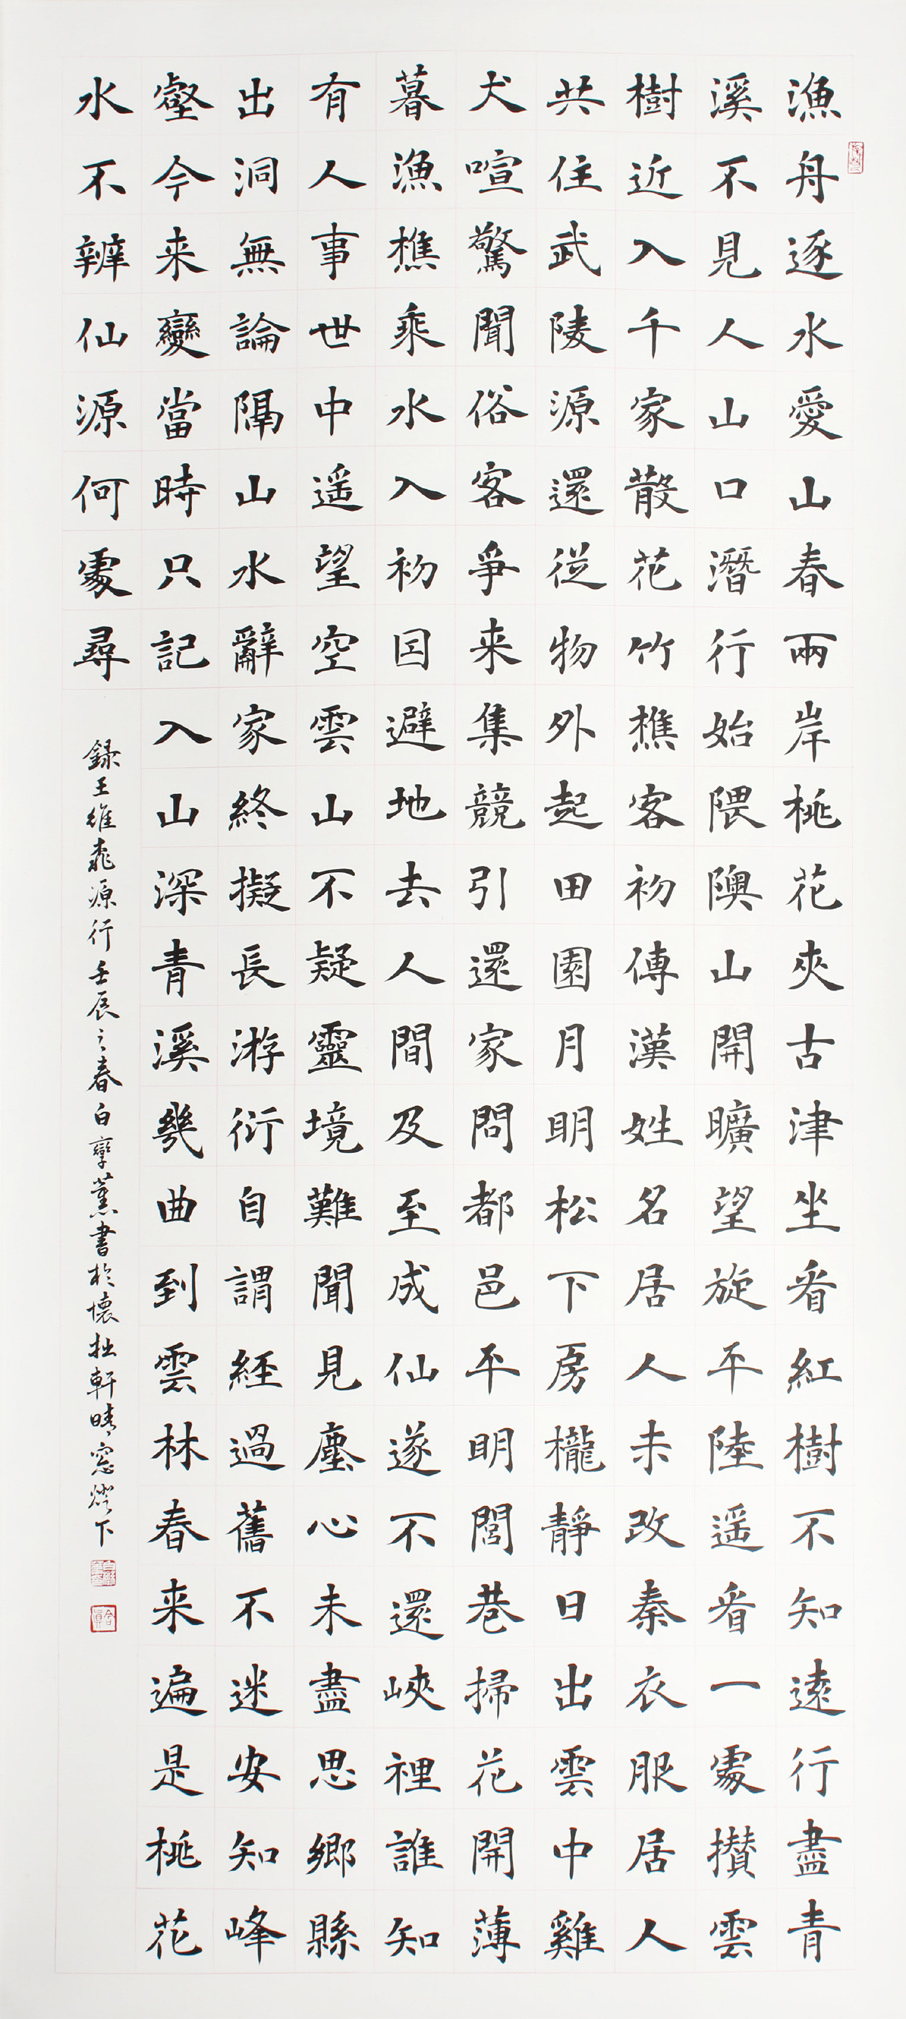 漁舟逐水愛山春兩岸桃花夾古津坐看紅樹不知遠行盡青
溪不見人山口潛行始隈隩山開曠望旋平陸遥看一處攢雲
樹近入千家散花竹樵客初傳漢姓名居人未改秦衣服居人
共住武陵源還從物外起田園月明松下房櫳靜日出雲中雞
犬喧驚聞俗客爭来集競引還家問都邑平明閭巷掃花開薄
暮漁樵乘水入初因避地去人間及至成仙遂不還峽裡誰知
有人事世中遥望空雲山不疑靈境難聞見塵心未盡思鄉縣
出洞無論隔山水辭家終擬長游衍自謂経過舊不迷安知峰
壑今来變當時只記入山深青溪幾曲到雲林春来遍是桃花
水不辨仙源何處尋
録王維桃源行壬辰之春白薰書於懷拙軒晴窓燈下